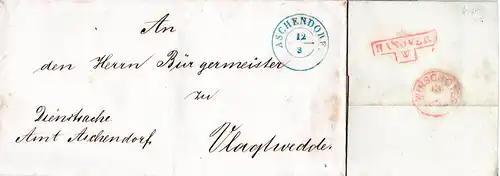 An
ASCHENDORF
12
3
den Herrn Bürgermeister
zu
Dienstsache
Amt Aschendorf.
Vlagtwedde
HANOVER
WINSCHOTEN